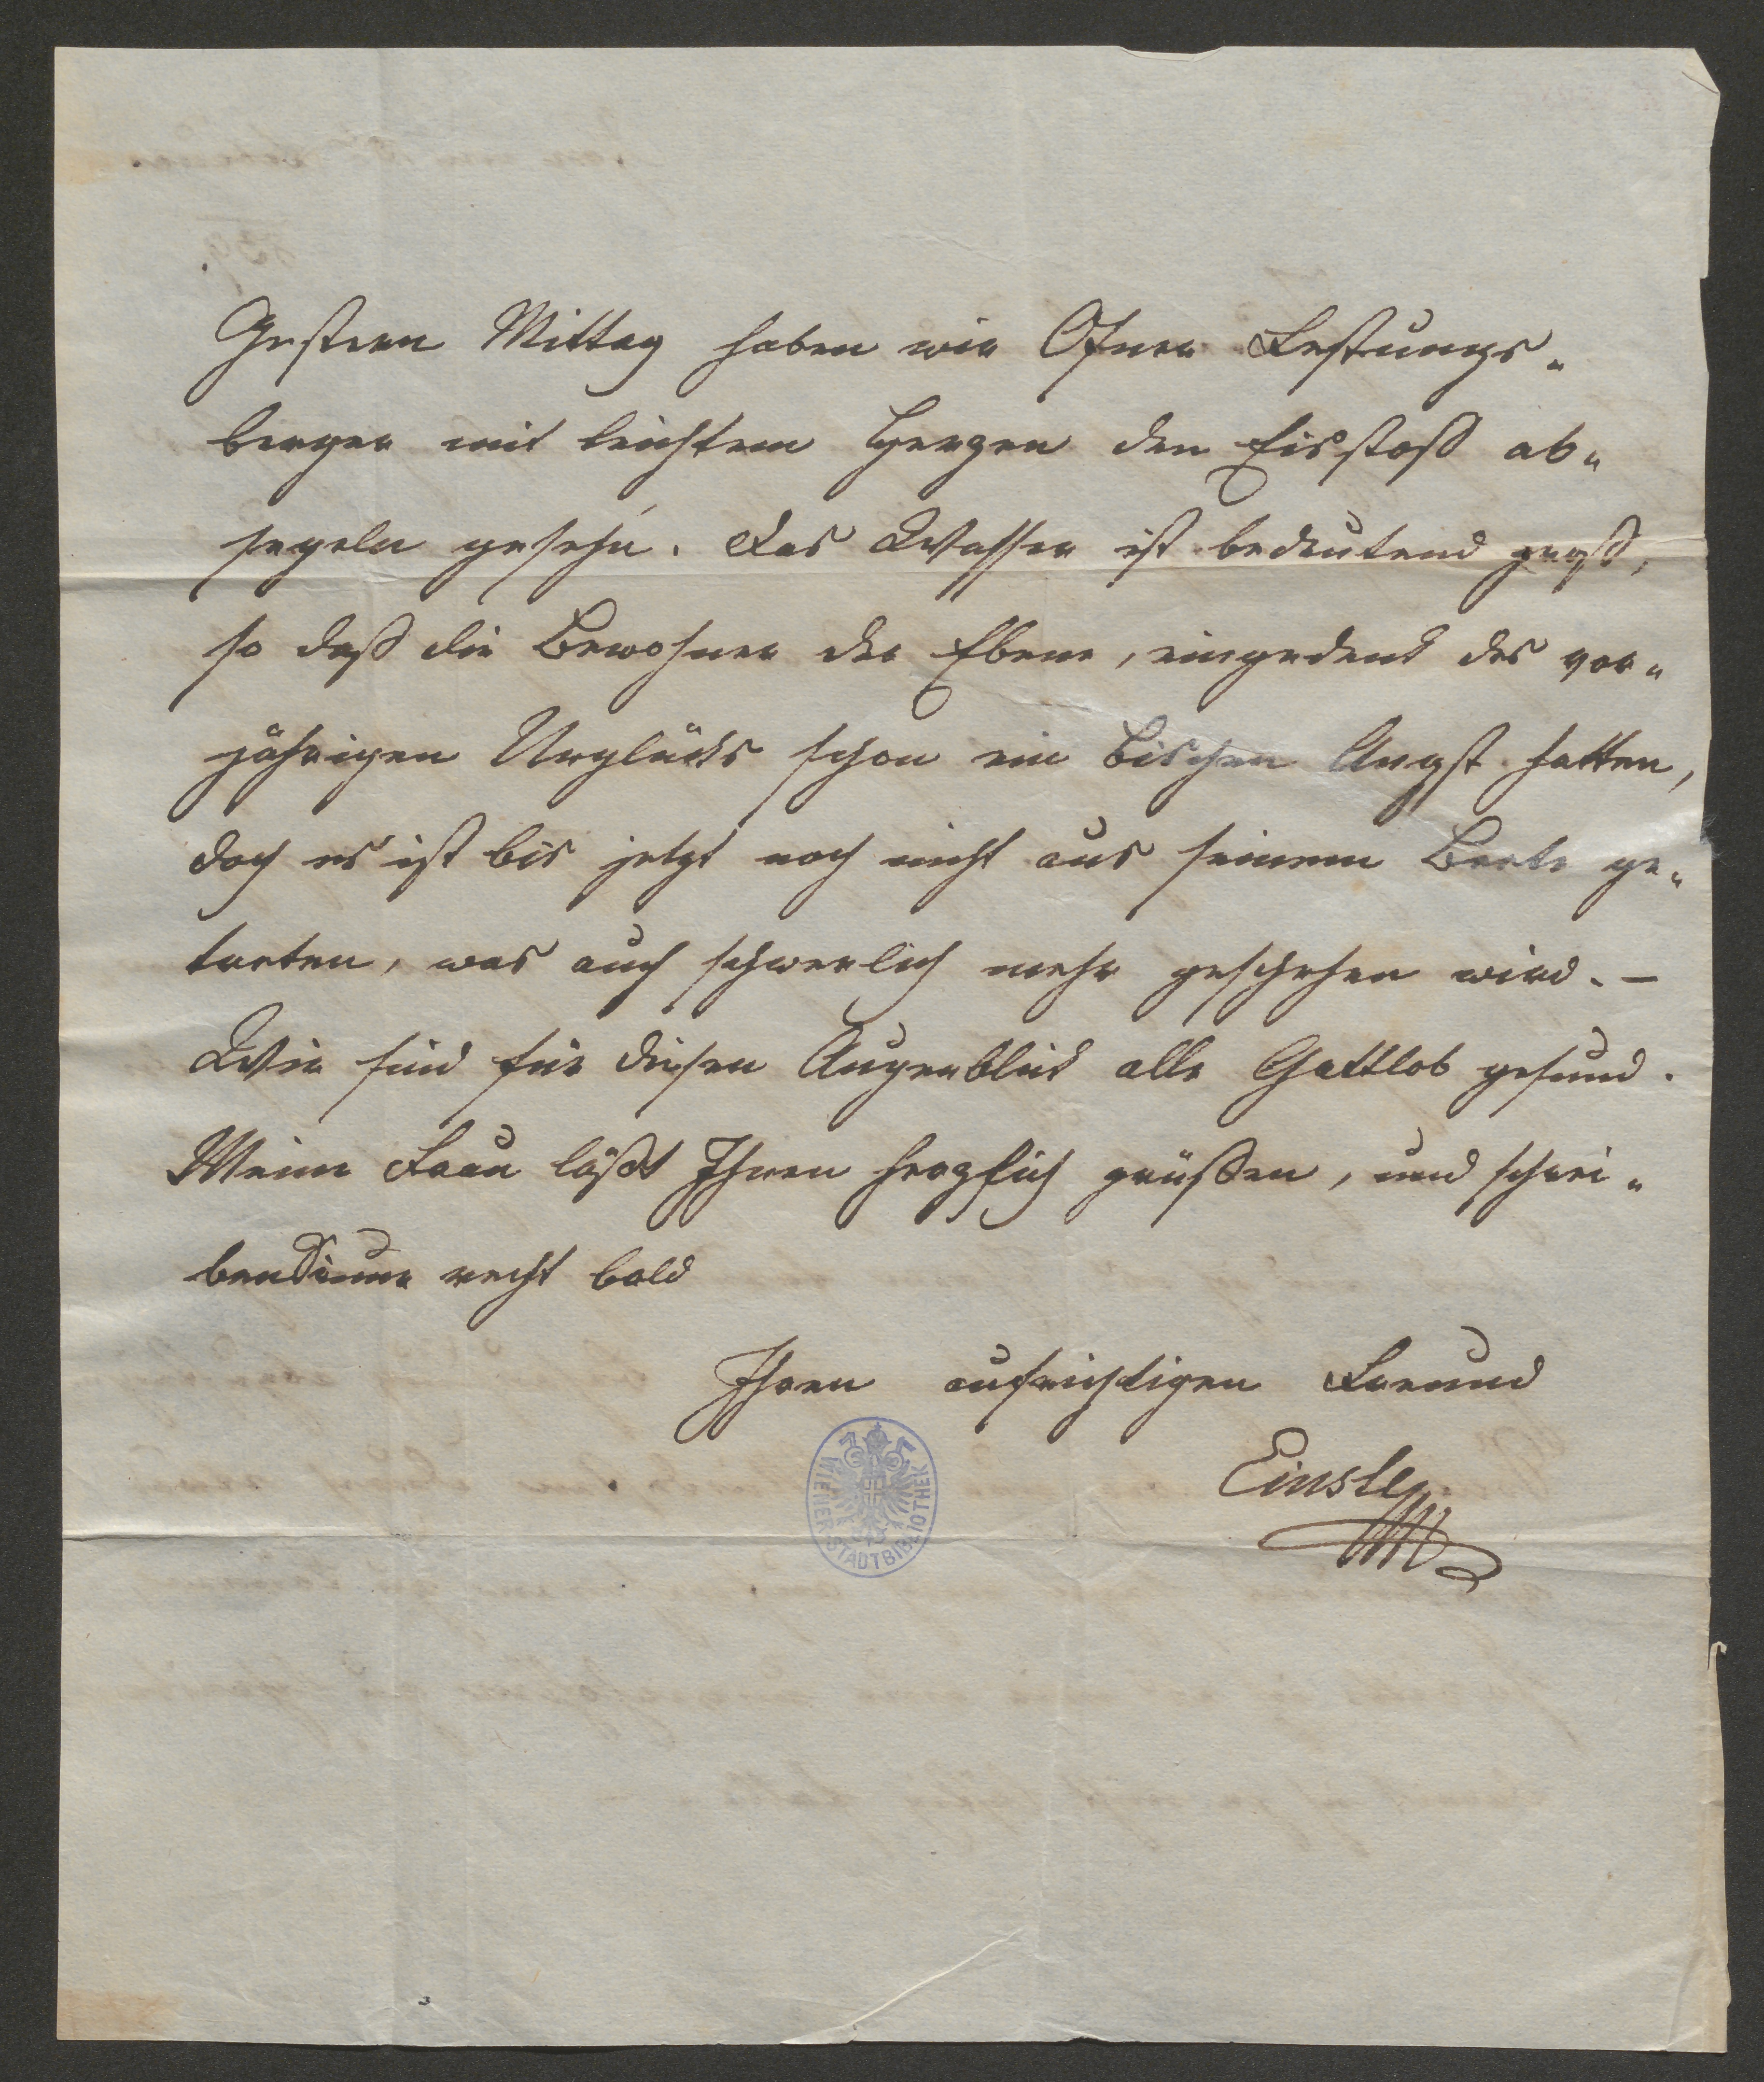 Gestern Mittag haben wir Ofner Festungs-
berger mit leichtem Herzen den Eisstoß ab-
segeln geseh'n. Das Wasser ist bedeutend groß,
so daß die Bewohner der Ebene, eingedenk des vor-
jährigen Unglücks schon ein bischen Angst hatten,
doch es ist bis jetzt noch nicht aus seinem Bette ge-
tretten, was auch schwerlich mehr geschehen wird. –
Wir sind für diesen Augenblick alle Gottlob gesund.
Meine Frau läßt Ihnen herzlich grüßen, und schrei-
ben recht bald
Ihren aufrichtigen Freund
Einsle
WIENER STADTBIBLIOTHEK